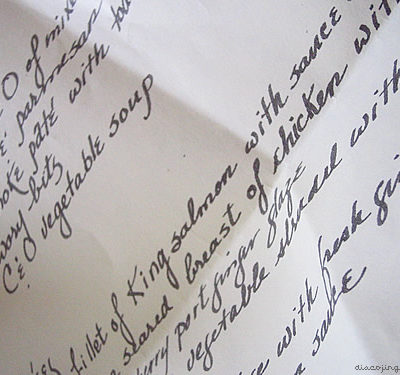 O of mixe
parmesan
pate with to
vory bits
C & d vegetable soup
fillet of King salmon with sauce
seared breast of chicken with
port ginger glaze
vegetable strudel with
with fresh gi
sauce
discojing